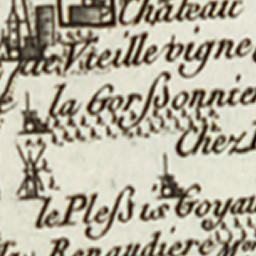 Château
de Vieille vigne
la Gorſſonnier
Chez
le Pleſsis Goyau
Renaudiere